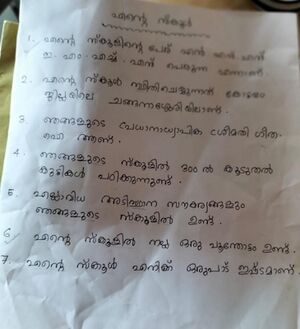 എന്റെ സ്കൂൾ
1. എന്റെ സ്കൂളിന്റെ പേര് എൻ എസ് എസ്
എച്ച് . എസ് . എസ് പെരുന്ന എന്നാണ് .
2. എന്റെ സ്കൂൾ സ്ഥിതിചെയ്യുന്നത് കോട്ടയം
ജില്ലയിലെ ചങ്ങനാശ്ശേരിയിലാണ് .
3. ഞങ്ങളുടെ പ്രധാനാധ്യാപിക ശ്രീമതി ഗീത
ആണ് .
4. ഞങ്ങളുടെ സ്കൂളിൽ 300 ൽ കൂടുതൽ
കുട്ടികൾ പഠിക്കുന്നുണ്ട് .
5. എല്ലാവിധ അടിസ്ഥാന സൗകര്യങ്ങളും
ഞങ്ങളുടെ സ്കൂളിൽ ഉണ്ട് .
6. എന്റെ സ്കൂളിൽ നല്ല ഒരു പൂന്തോട്ടം ഉണ്ട് .
7. എന്റെ സ്കൂൾ എനിക്ക് ഒരുപാട് ഇഷ്ടമാണ്